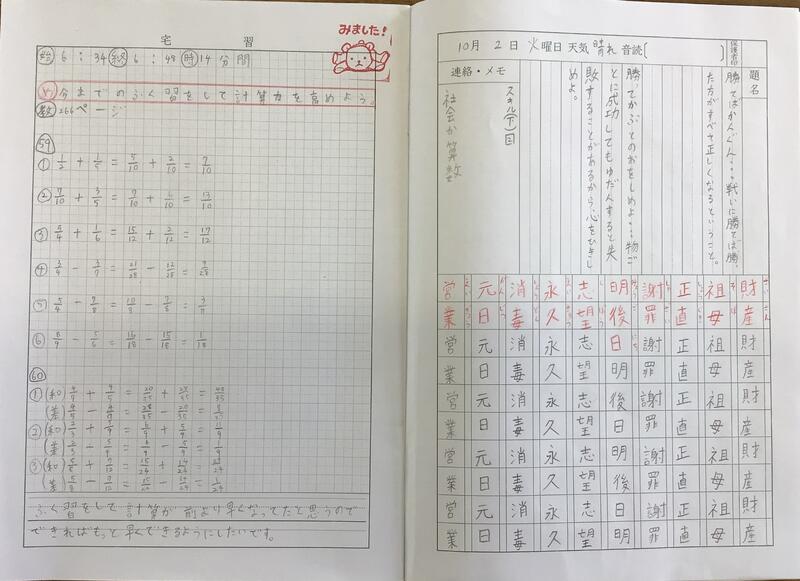 宅習
みました!
始6:34終6:48時14分間
め 今までのふく習をして計算力を高めよう。
数266ページ
59
① 1/2 + 1/5 = 5/10 + 2/10 = 7/10
② 7/10 + 3/5 = 7/10 + 6/10 = 13/10
③ 5/4 + 1/6 = 15/12 + 2/12 = 17/12
④ 3/4 - 3/7 = 21/28 - 12/28 = 9/28
⑤ 5/4 - 7/8 = 10/8 - 7/8 = 3/8
⑥ 8/9 - 5/6 = 16/18 - 15/18 = 1/18
60
①(和) 4/7 + 4/5 = 20/35 + 28/35 = 48/35
(差) 4/5 - 4/7 = 28/35 - 20/35 = 8/35
②(和) 2/3 + 5/9 = 6/9 + 5/9 = 11/9
(差) 2/3 - 5/9 = 6/9 - 5/9 = 1/9
③(和) 5/8 + 7/12 = 15/24 + 14/24 = 29/24
(差) 5/8 - 7/12 = 15/24 - 14/24 = 1/24
ふく習をして計算が前より早くなってたと思うので
できればもっと早くできるようにしたいです。
10月2日火曜日 天気 晴れ 音読( )
保護者印
題名
連絡・メモ
勝てばかんぐん…戦いに勝てば勝っ
た方がすべて正しくなるということ。
勝ってかぶとのおをしめよ…物ご
とに成功してもゆだんすると失
敗することがあるから、心をひきし
めよ。
スキル(下)国
社会か算数
財産財産財産財産財産
祖母祖母祖母祖母祖母
正直正直正直正直正直
謝罪謝罪謝罪謝罪謝罪
明後日明後日明後日明
志望志望志望志望志望
永久永久永久永久永久
消毒消毒消毒消毒消毒
元日元日元日元日元日
営業営業営業営業営業